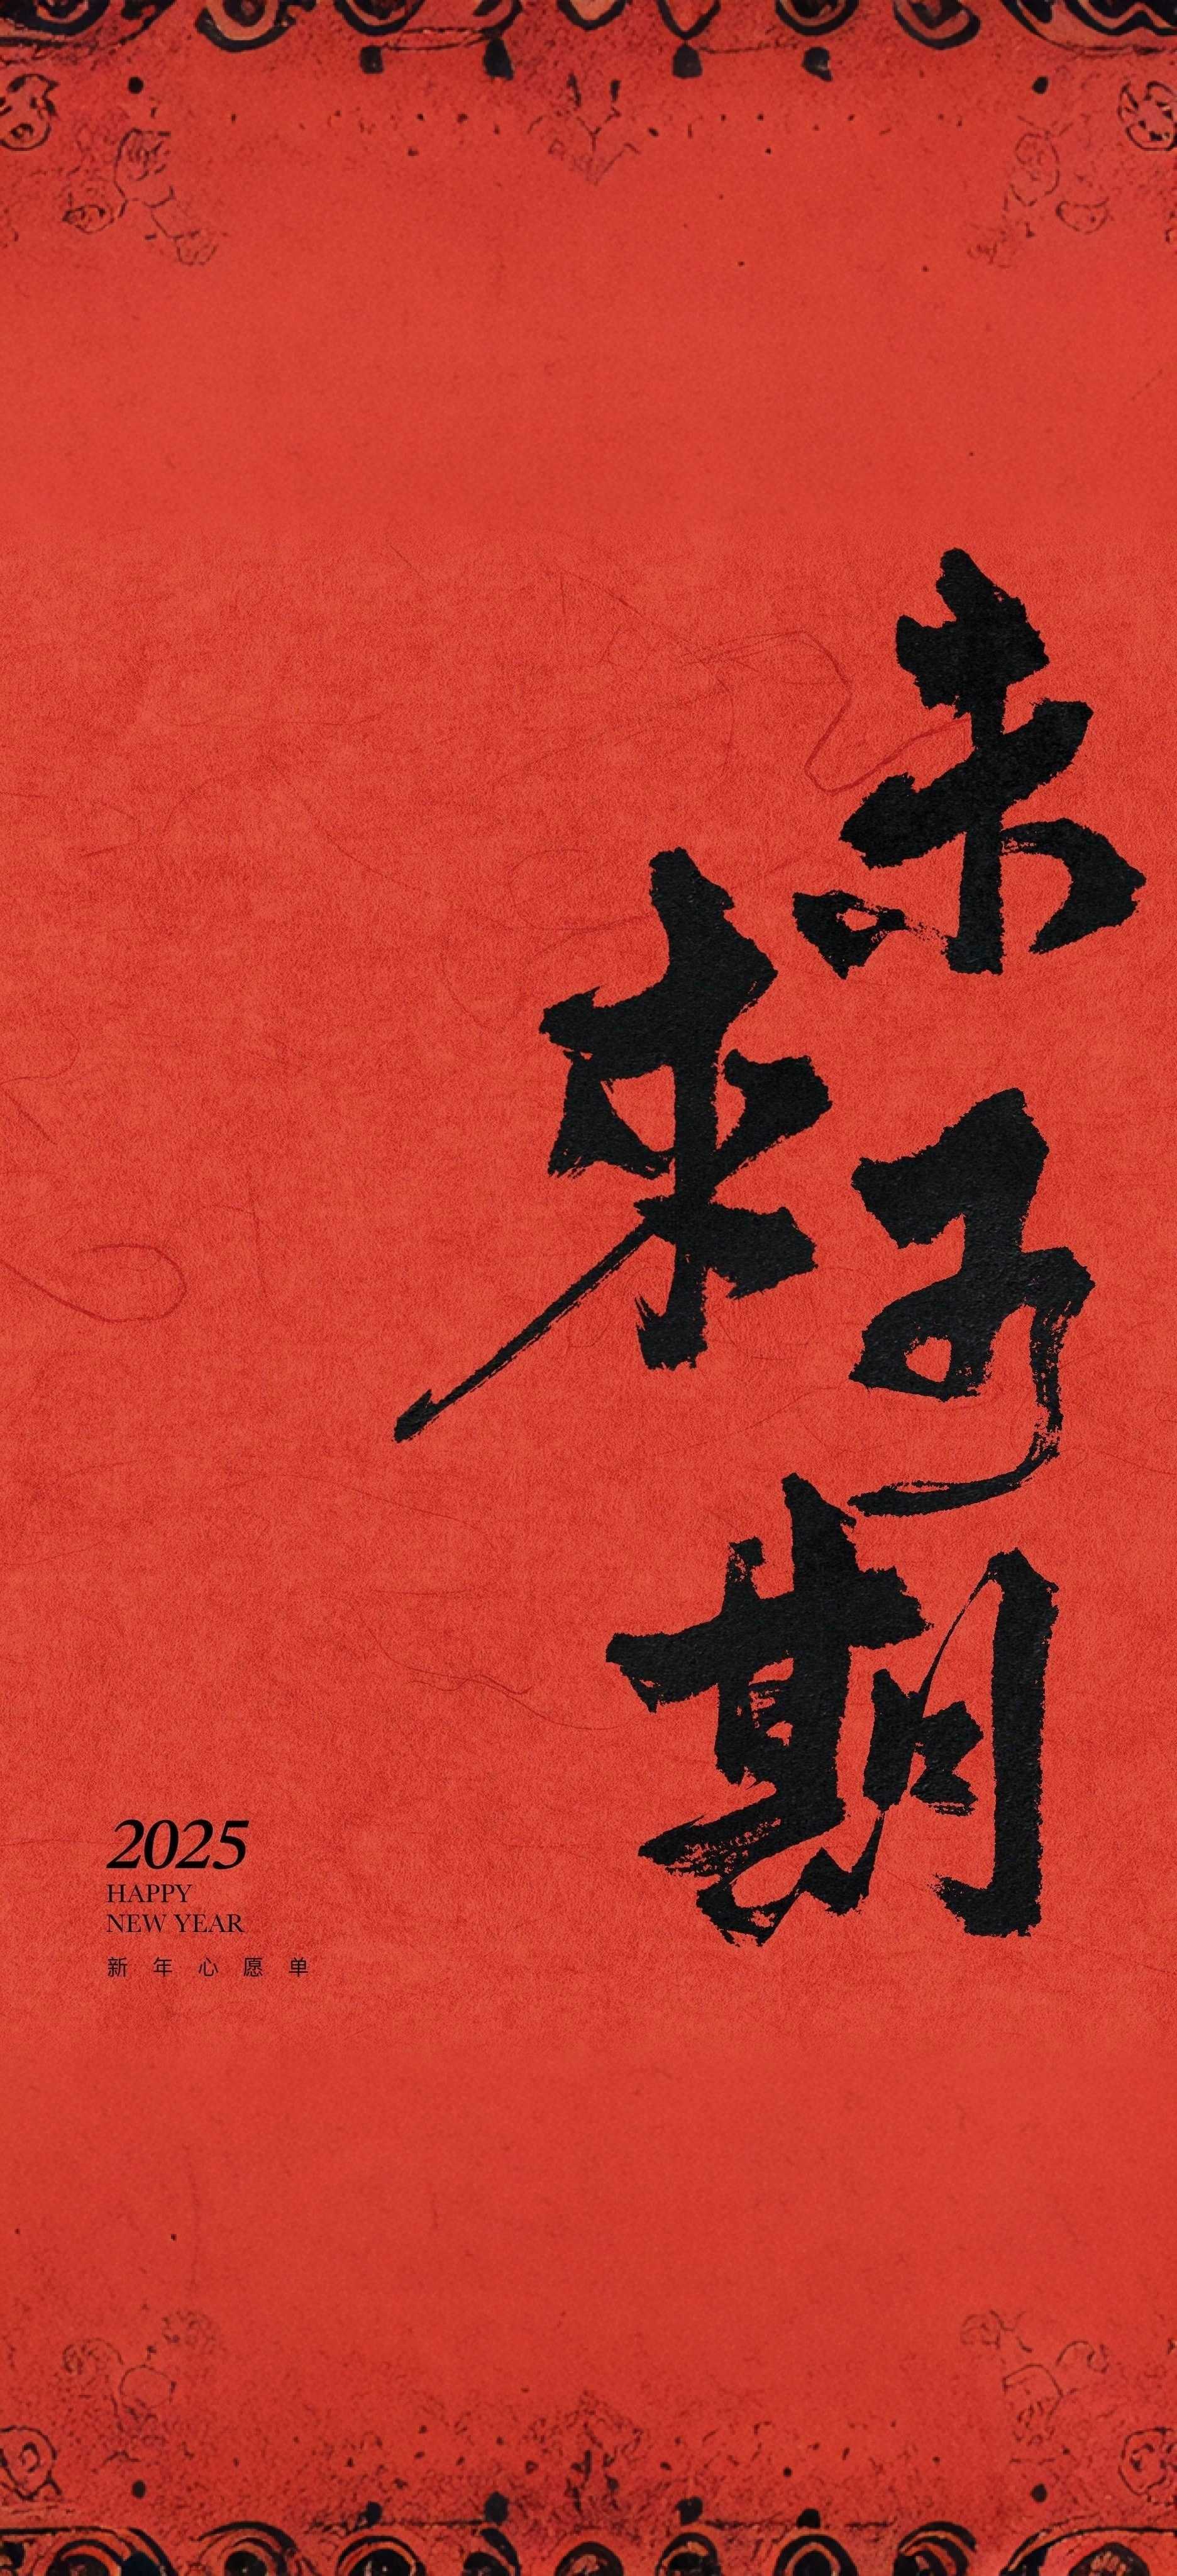 未来可期
2025
HAPPY
NEW YEAR
新年心愿单